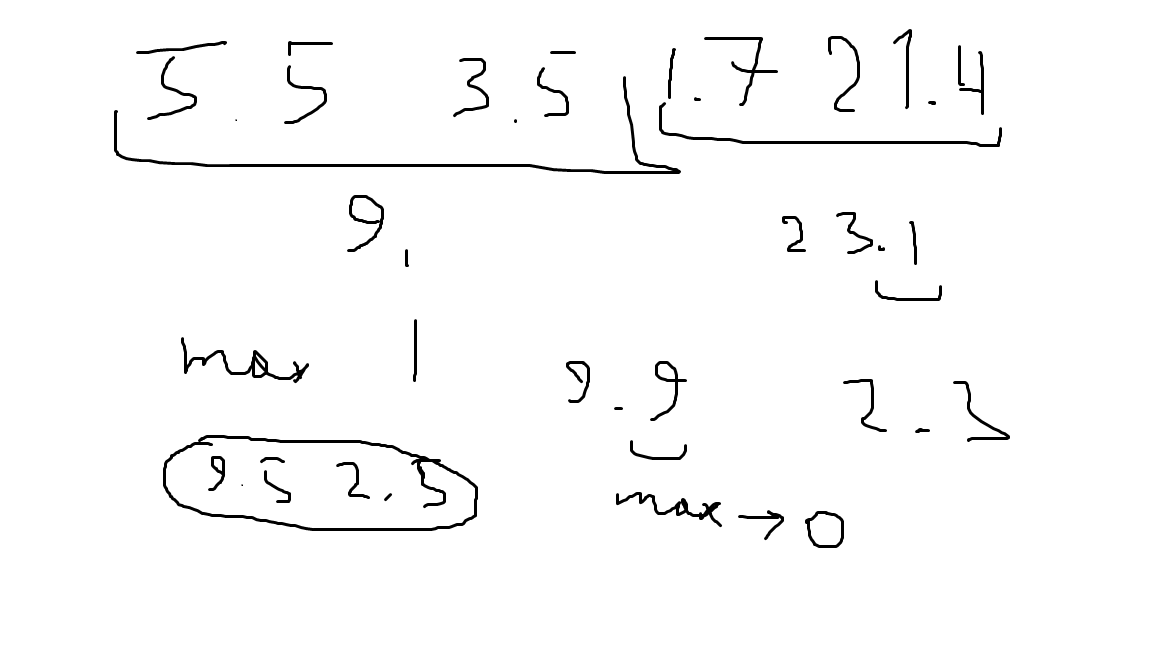 5.5 3.5 1.7 21.4
9. 23.1
max 1 9.9 2.3
9.5 2.5 max → 0